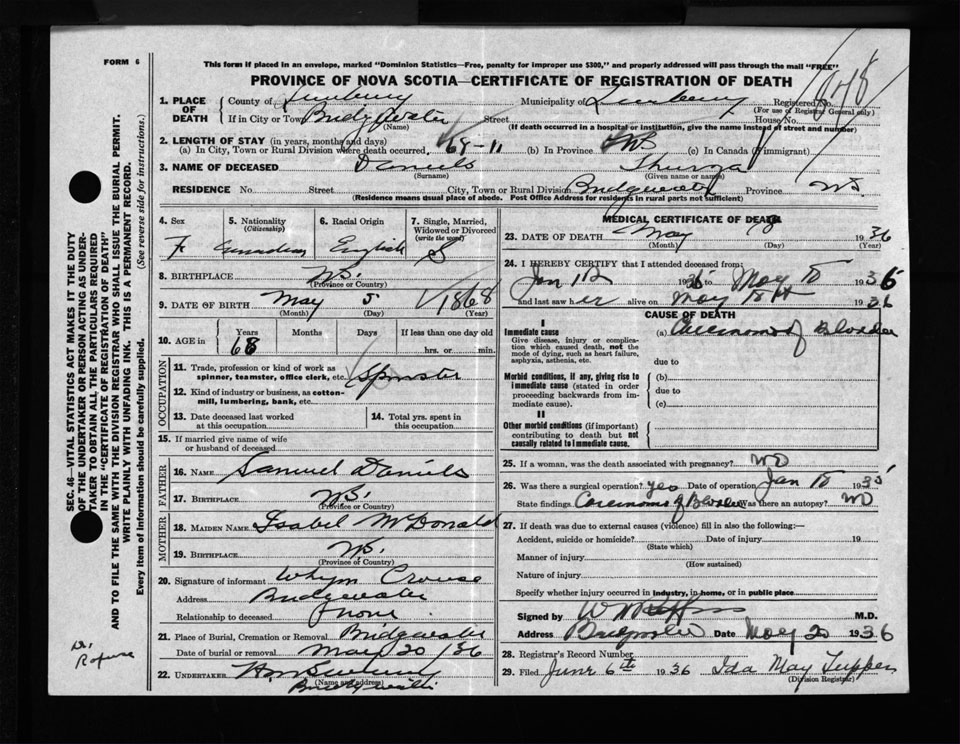 FORM 6
This form if placed in an envelope, marked "Dominion Statistics—Free, penalty for improper use $300," and properly addressed will pass through the mail "FREE"
PROVINCE OF NOVA SCOTIA—CERTIFICATE OF REGISTRATION OF DEATH
1. PLACE OF DEATH
County of Lunenburg Municipality of Lunenburg Registered No.
(For use of Registrar General only)
If in City or Town Bridgewater Street House No.
(Name) (If death occurred in a hospital or institution, give the name instead of street and number)
2. LENGTH OF STAY (in years, months and days)
(a) In City, Town or Rural Division where death occurred, 68-11 (b) In Province NS (c) In Canada if immigrant
3. NAME OF DECEASED Daniels Thurza
(Surname) (Given name or names)
RESIDENCE No. Street City, Town or Rural Division Bridgewater Province NS
(Residence means usual place of abode. Post Office Address for residents in rural parts not sufficient)
4. Sex 5. Nationality (Citizenship) 6. Racial Origin 7. Single, Married, Widowed or Divorced (write the word)
F Canadian English S
8. BIRTHPLACE NS.
(Province or Country)
9. DATE OF BIRTH May 5 1868
(Month) (Day) (Year)
10. AGE in Years Months Days If less than one day old
68 hrs. or min.
OCCUPATION
11. Trade, profession or kind of work as spinner, teamster, office clerk, etc. Spinster
12. Kind of industry or business, as cotton-mill, lumbering, bank, etc.
13. Date deceased last worked at this occupation
14. Total yrs. spent in this occupation
15. If married give name of wife or husband of deceased
FATHER
16. NAME Samuel Daniels
17. BIRTHPLACE NS.
(Province or Country)
MOTHER
18. MAIDEN NAME Isabel McDonald
19. BIRTHPLACE NS.
(Province or Country)
20. Signature of informant Crouse
Address Bridgewater
Relationship to deceased none
21. Place of Burial, Cremation or Removal Bridgewater
Date of burial or removal May 20/36
22. UNDERTAKER
(Name and address)
MEDICAL CERTIFICATE OF DEATH
23. DATE OF DEATH May 18 1936
(Month) (Day) (Year)
24. I HEREBY CERTIFY that I attended deceased from:
Jan 1936 to May 18 1936
and last saw her alive on May 18th 1936
CAUSE OF DEATH
I
Immediate cause
Give disease, injury or complication which caused death, not the mode of dying, such as heart failure, asphyxia, asthenia, etc.
(a) Carcinoma of Bladder
due to
Morbid conditions, if any, giving rise to immediate cause (stated in order proceeding backwards from immediate cause).
(b)
due to
(c)
II
Other morbid conditions (if important) contributing to death but not causally related to immediate cause.
25. If a woman, was the death associated with pregnancy? NO
26. Was there a surgical operation? yes Date of operation Jan 18 1935
State findings Carcinoma of Bladder Was there an autopsy? NO
27. If death was due to external causes (violence) fill in also the following:—
Accident, suicide or homicide? Date of injury 19
(State which)
Manner of injury
(How sustained)
Nature of injury
Specify whether injury occurred in industry, in home, or in public place
Signed by M.D.
Address Bridgewater Date May 20 1936
28. Registrar's Record Number
29. Filed June 6th 1936 Ida May Tupper
(Division Registrar)
SEC. 46—VITAL STATISTICS ACT MAKES IT THE DUTY
OF THE UNDERTAKER OR PERSON ACTING AS UNDER-
TAKER TO OBTAIN ALL THE PARTICULARS REQUIRED
IN THE "CERTIFICATE OF REGISTRATION OF DEATH"
AND TO FILE THE SAME WITH THE DIVISION REGISTRAR WHO SHALL ISSUE THE BURIAL PERMIT.
WRITE PLAINLY WITH UNFADING INK. THIS IS A PERMANENT RECORD.
Every item of Information should be carefully supplied. (See reverse side for instructions.)